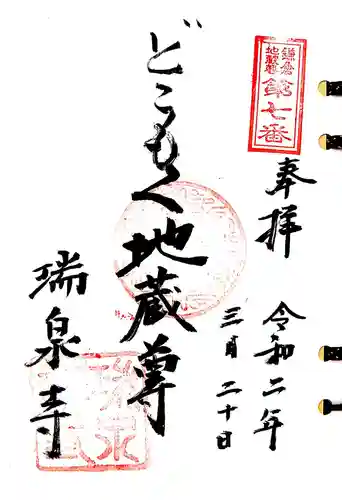 鎌倉
地蔵尊
第七番
奉拝
令和二年
三月二十日
どこもく地蔵尊
瑞泉寺